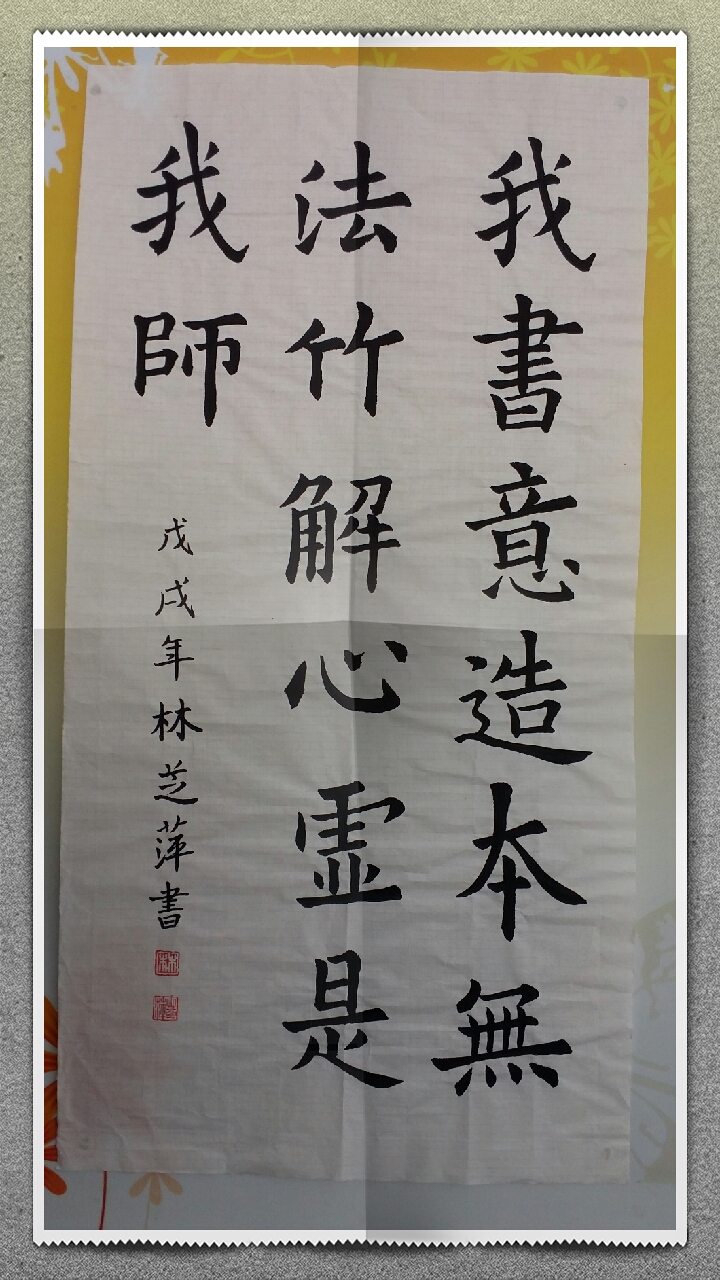 我書意造本無
法竹解心虛是
我師
戊戌年林芝萍書